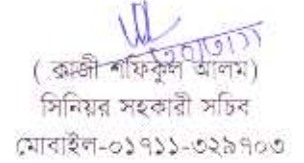 ( কাজী শফিকুল আলম)
সিনিয়র সহকারী সচিব
মোবাইল-০১৭১১-৩২৯৭০৩